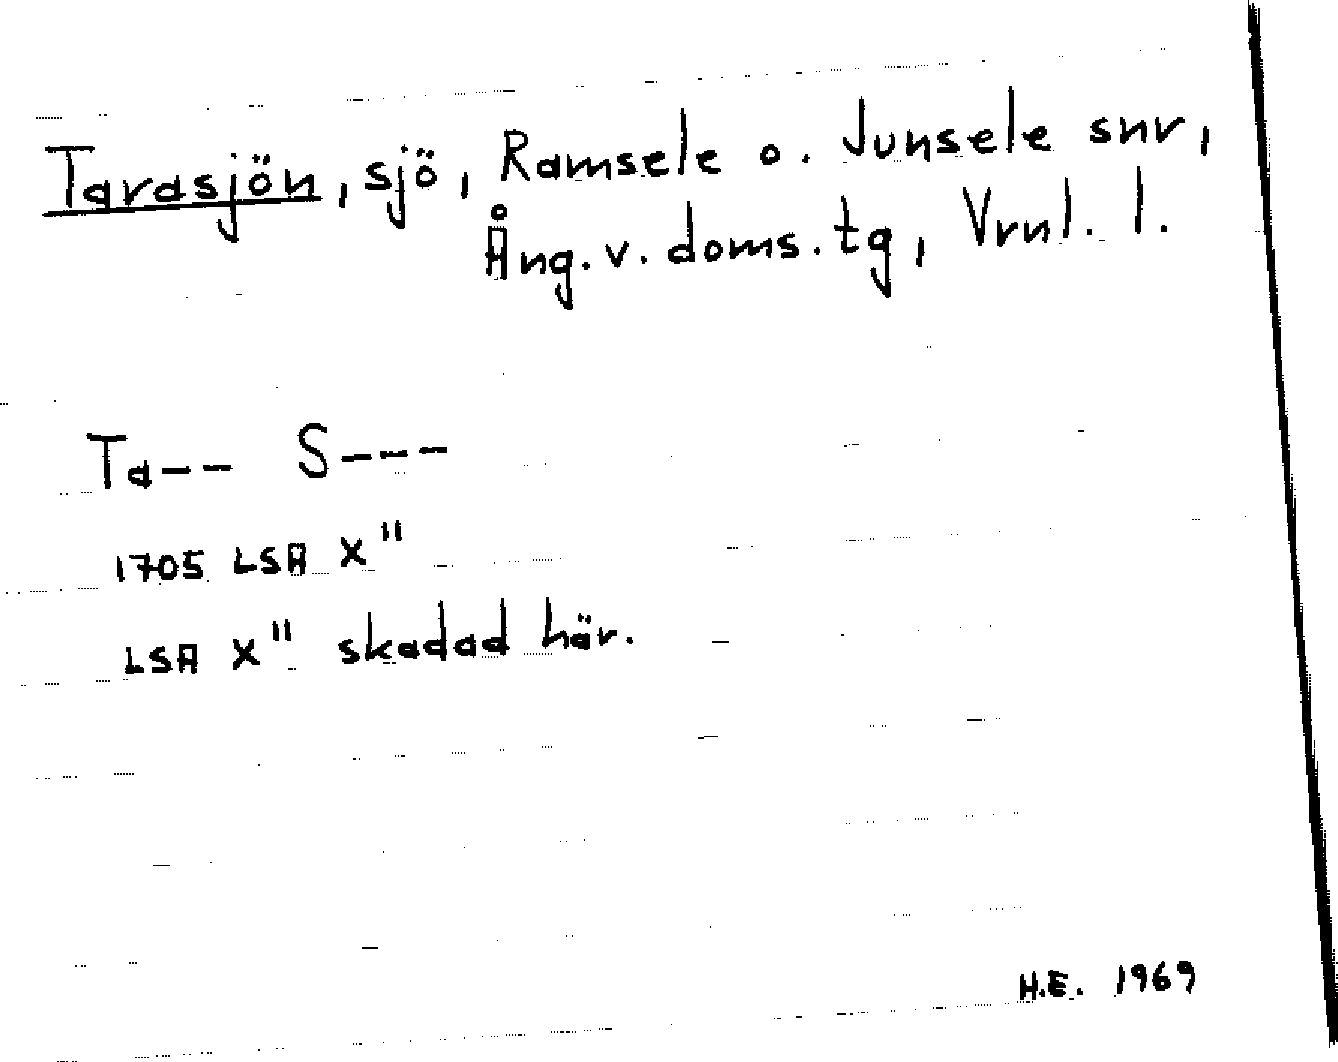 Tarasjön, sjö, Ramsele o. Junsele snr,
Ång. v. doms. tg, Vrnl. l.
Ta-- S---
1705 LSA X"
LSA X" skadad här.
H.E. 1969